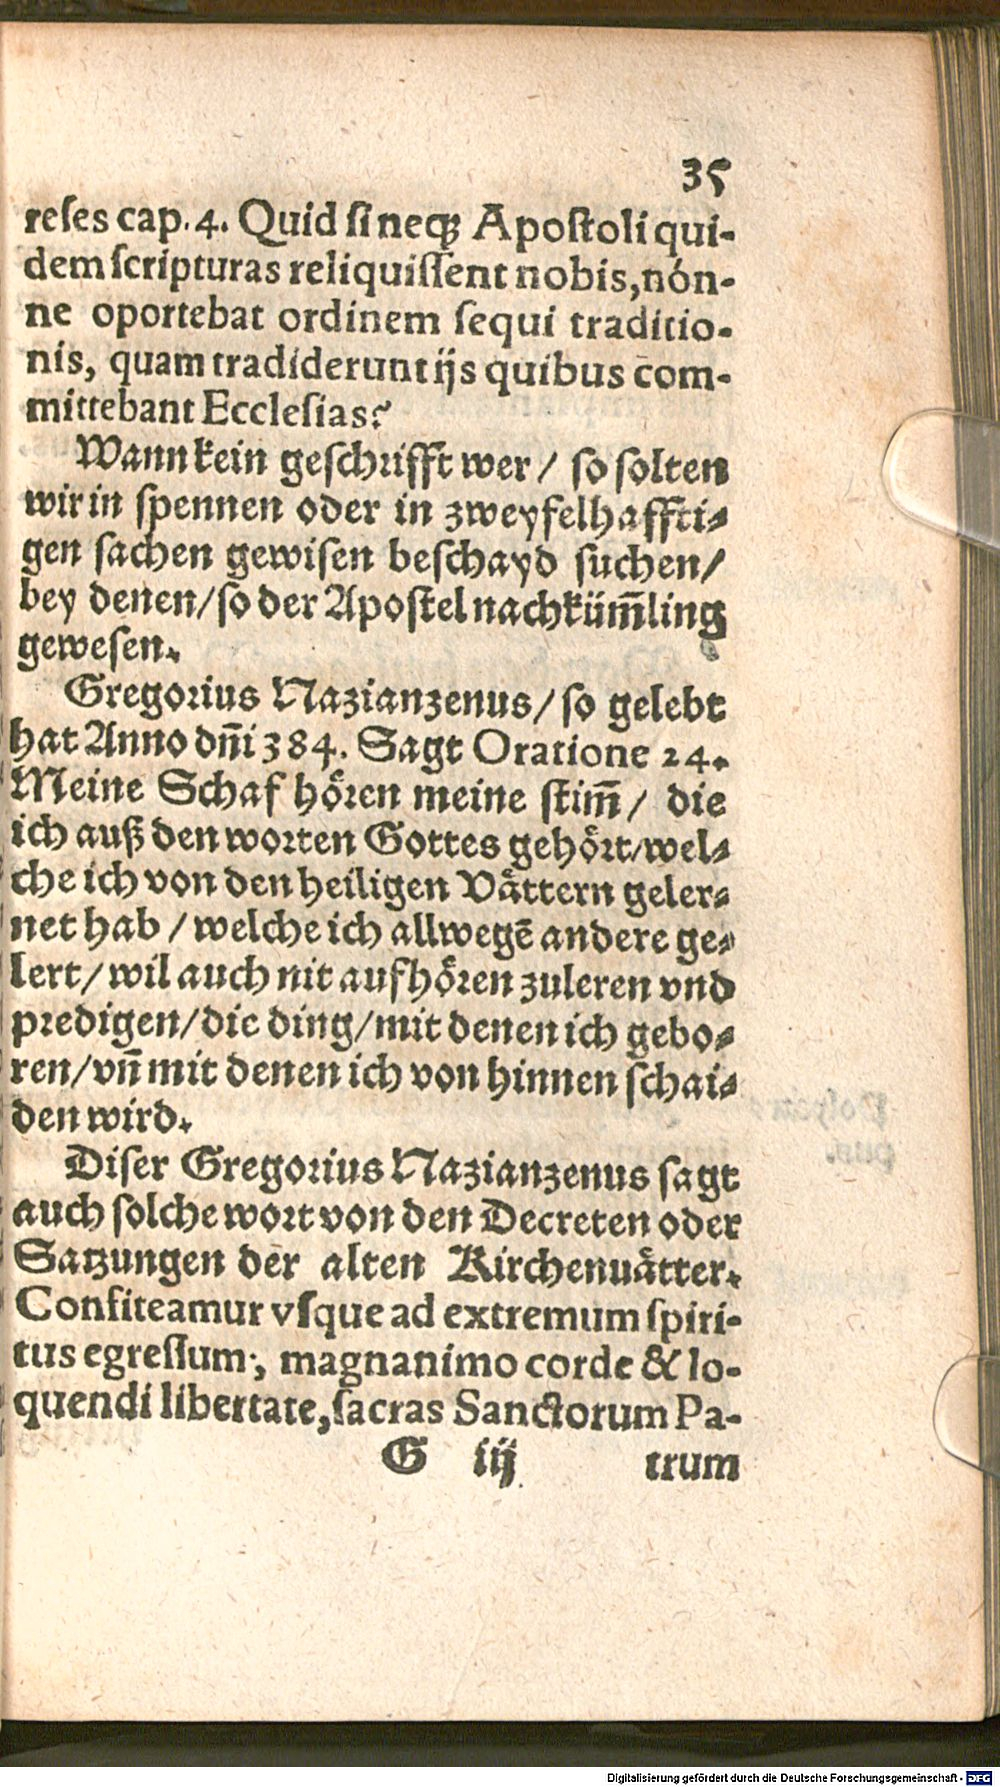 35
reſes cap. 4. Quid ſi neq́; Apoſtoli qui-
dem ſcripturas reliquiſſent nobis, nón-
ne oportebat ordinem ſequi traditio-
nis, quam tradiderunt ijs quibus com-
mittebant Eccleſias?
Wann kein geſchrifft wer / ſo ſolten
wir in ſpennen oder in zweyfelhaffti-
gen ſachen gewiſen beſchayd ſuchen /
bey denen / ſo der Apoſtel nachküm̃ling
geweſen.
Gregorius Nazianzenus / ſo gelebt
hat Anno dñi 384. Sagt Oratione 24.
Meine Schaf hoͤren meine ſtim̃ / die
ich auß den worten Gottes gehoͤrt / wel-
che ich von den heiligen Vaͤttern geler-
net hab / welche ich allwegē andere ge-
lert / wil auch nit aufhoͤren zuleren vnd
predigen / die ding / mit denen ich gebo-
ren / vñ mit denen ich von hinnen ſchai-
den wird.
Diſer Gregorius Nazianzenus ſagt
auch ſolche wort von den Decreten oder
Satzungen der alten Kirchenuaͤtter.
Confiteamur vſque ad extremum ſpiri-
tus egreſſum, magnanimo corde & lo-
quendi libertate, ſacras Sanctorum Pa-
G iij trum
Digitalisierung gefördert durch die Deutsche Forschungsgemeinschaft - DFG